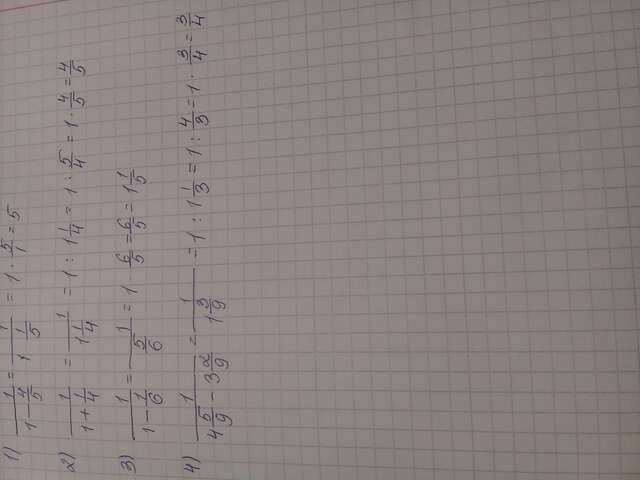 1) 1/(1 - 4/5) = 1/(1 1/5) = 1 · 5/1 = 5
2) 1/(1 + 1/4) = 1/(1 1/4) = 1 : 1 1/4 = 1 : 5/4 = 1 · 4/5 = 4/5
3) 1/(1 - 1/6) = 1/(5/6) = 1 · 6/5 = 6/5 = 1 1/5
4) 1/(4 5/9 - 3 2/9) = 1/(1 3/9) = 1 : 1 1/3 = 1 : 4/3 = 1 · 3/4 = 3/4